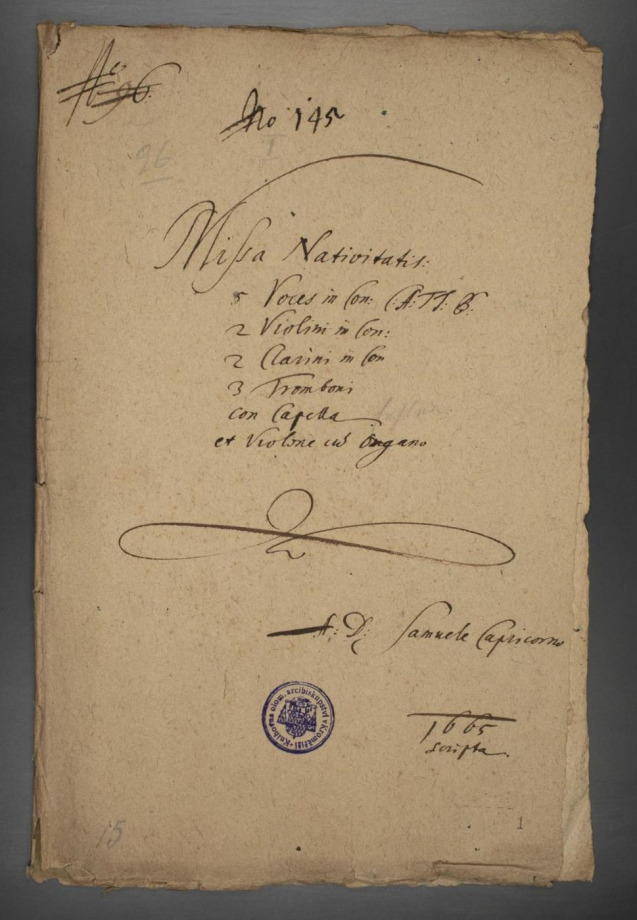 No 96.
No 145
96
Missa Nativitatis:
5 Voces in Con: C: A: TT. B.
2 Violini in Con:
2 Clarini in Con
3 Tromboni
con Capella
et Violone cũ Organo
A: D: Samuele Capricorno
Knihovna olom. arcibiskupství v Kroměříži
1665
scripta.
15
1